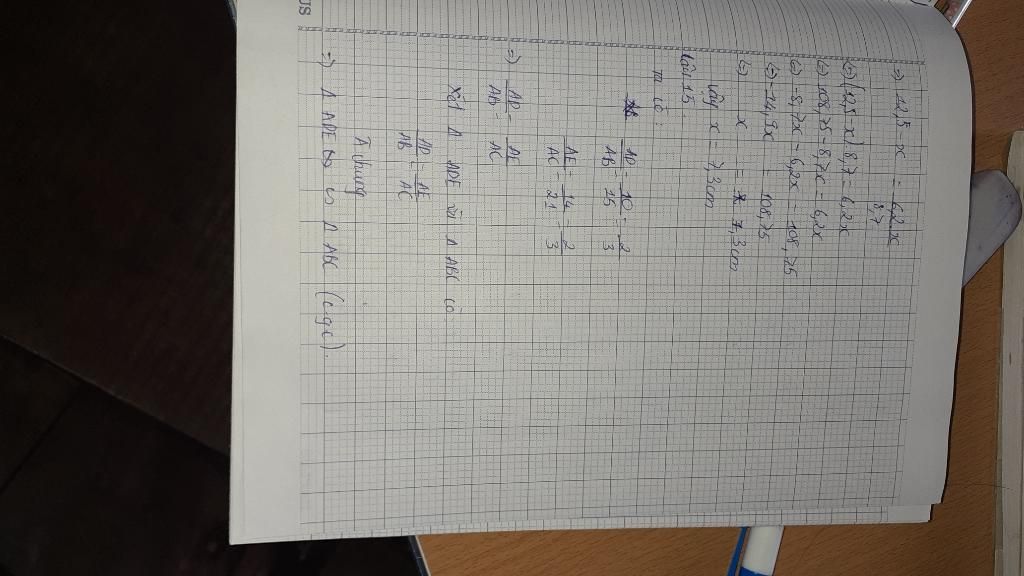 =) 12,5 - x = 6,2.x / 8,7
(=) (12,5 - x) 8,7 = 6,2x
(=) 108,75 - 8,7x = 6,2x
(=) -8,7x - 6,2x = -108,75
(=) -14,9x = 108,75
(=) x = 7,3cm
Vậy x = 7,3cm
Bài 15:
Ta có:
AD/AB = 10/15 = 2/3
AE/AC = 14/21 = 2/3
=) AD/AB = AE/AC
Xét Δ ADE và Δ ABC có:
AD/AB = AE/AC
Â chung
=) Δ ADE ∽ Δ ABC (c.g.c).